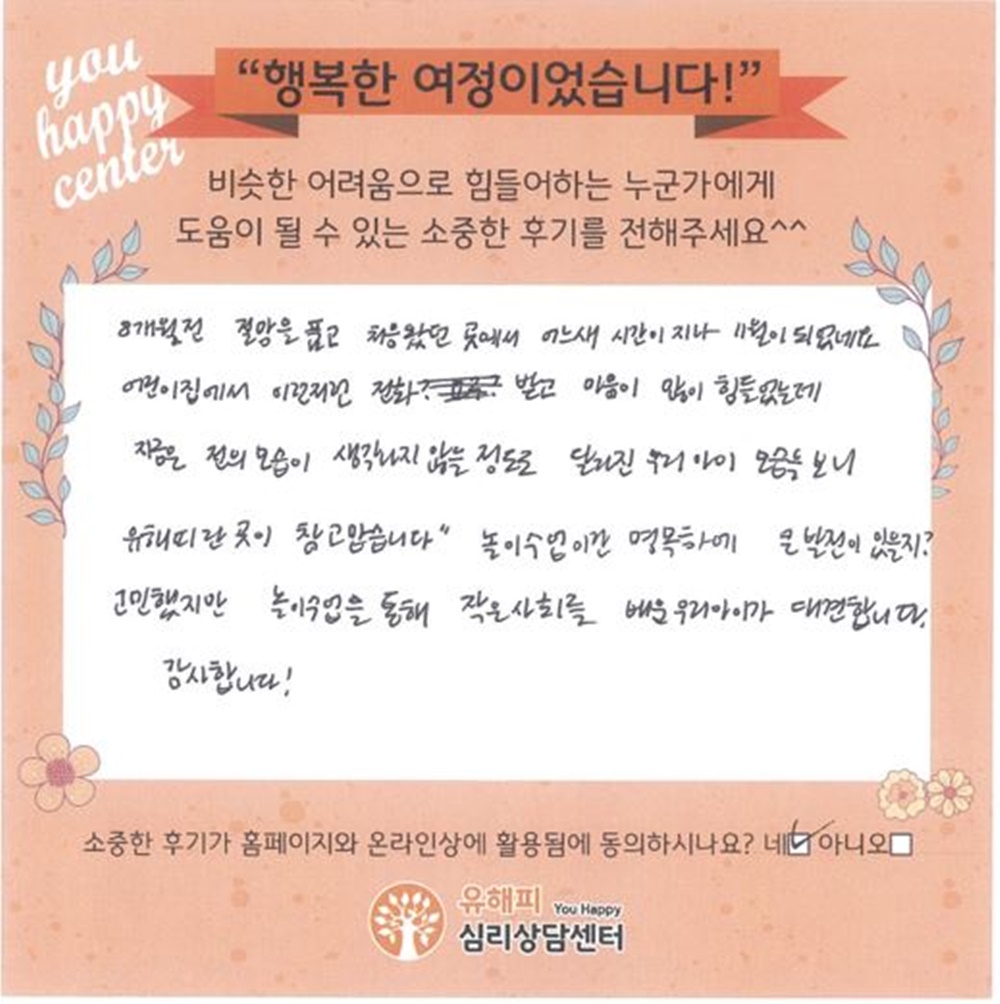 you
happy
center
“행복한 여정이었습니다!”
비슷한 어려움으로 힘들어하는 누군가에게
도움이 될 수 있는 소중한 후기를 전해주세요^^
8개월전 절망을 품고 처음왔던 곳에서 어느새 시간이 지나 11월이 되었네요
어린이집에서 이런저런 전화 받고 마음이 많이 힘들었는데
지금은 전의 모습이 생각하지 않을 정도로 달라진 우리 아이 모습을 보니
유해피란 곳이 참 고맙습니다" 놀이수업이란 명목하에 큰 발전이 있을지?
고민했지만 놀이수업을 통해 작은사회를 배운 우리아이가 대견합니다.
감사합니다!
소중한 후기가 홈페이지와 온라인상에 활용됨에 동의하시나요? 네☑ 아니오☐
유해피 You Happy
심리상담센터